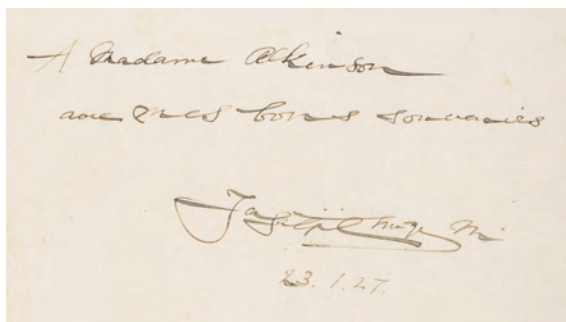 A Madame Atkinson
avec mes bons souvenirs
23.1.27.